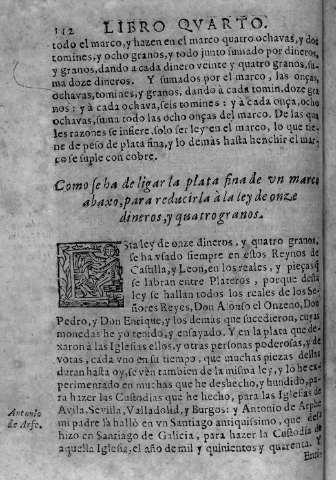 112 LIBRO QVARTO.
todo el marco, y hazen en el marco quatro ochavas, y dos
tomines, y ocho granos, y todo junto sumado por dineros,
y granos, dando à cada dinero veinte y quatro granos, su-
ma doze dineros. Y sumados por el marco, las onças,
ochavas, tomines, y granos, dando à cada tomin. doze gra
nos: y à cada ochava, seis tomines: y à cada onça, ocho
ochavas, suma todo las ocho onças del marco. De las qua
les razones se infiere, solo ser ley en el marco, lo que tie-
ne de peso de plata fina, y lo demàs hasta henchir el mar-
co se suple con cobre.
Como se ha de ligar la plata fina de vn marco
abaxo, para reducirla à la ley de onze
dineros, y quatro granos.
ESta ley de onze dineros, y quatro granos,
se ha vsado siempre en estos Reynos de
Castilla, y Leon, en los reales, y pieças q̃
se labran entre Plateros, porque desta
ley se hallan todos los reales de los Se-
ñores Reyes, Don Alonso el Onzeno, Don
Pedro, y Don Enrique, y los demàs que sucedieron, cuyas
monedas he yo tenido, y ensayado. Y en la plata que de-
xaron à las Iglesias ellos, y otras personas poderosas, y de-
votas, cada vno en su tiempo, que muchas pieças dellas
duran hasta oy, se vèn tambien de la misma ley, y lo he ex-
perimentado en muchas que he deshecho, y hundido, pa-
ra hazer las Custodias que he hecho, para las Iglesias de
Avila, Sevilla, Valladolid, y Burgos: y Antonio de Arphe
mi padre la hallò en vn Santiago antiquissimo, que des
hizo en Santiago de Galicia, para hazer la Custodia de
aquella Iglesia, el año de mil y quinientos y quarenta. Y
Antonio
de Arfe.